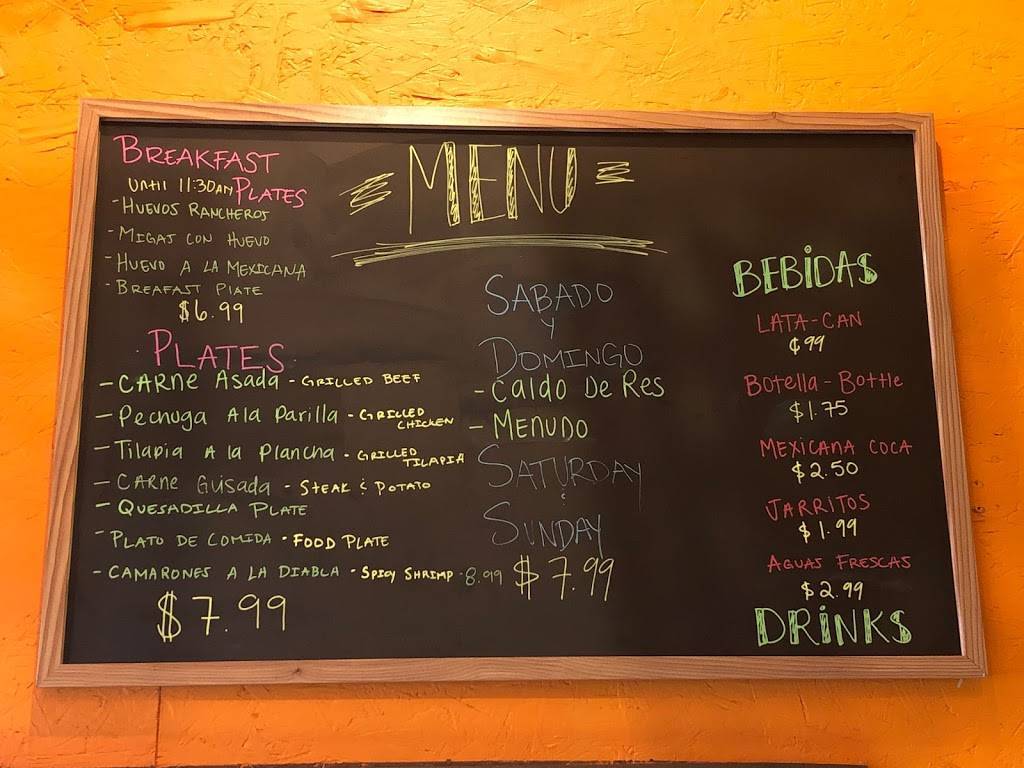 MENU
BREAKFAST
Until 11:30AM PLATES
- HUEVOS RANCHEROS
- MIGAS CON HUEVO
- HUEVO A LA MEXICANA
- BREAFAST PLATE
$6.99
PLATES
- CARne Asada - GRILLED BEEF
- Pechuga Ala Parilla - GRILLED CHICKEN
- Tilapia A la Plancha - GRILLED TILAPIA
- CARne Gusada - STEAK & POTATO
- QUESADILLA PLATE
- PLATO DE COMIDA - FOOD PLATE
- CAMARONES A LA DIABLA - SPICY SHRIMP - 8.99
$7.99
SABADO
Y
DOMINGO
- Caldo De Res
- MENUDO
SATURDAY
&
SUNDAY
$7.99
BEBIDAS
LATA - CAN
¢99
Botella - Bottle
$1.75
MEXICANA COCA
$2.50
JARRITOS
$1.99
AGUAS FRESCAS
$2.99
DRINKS